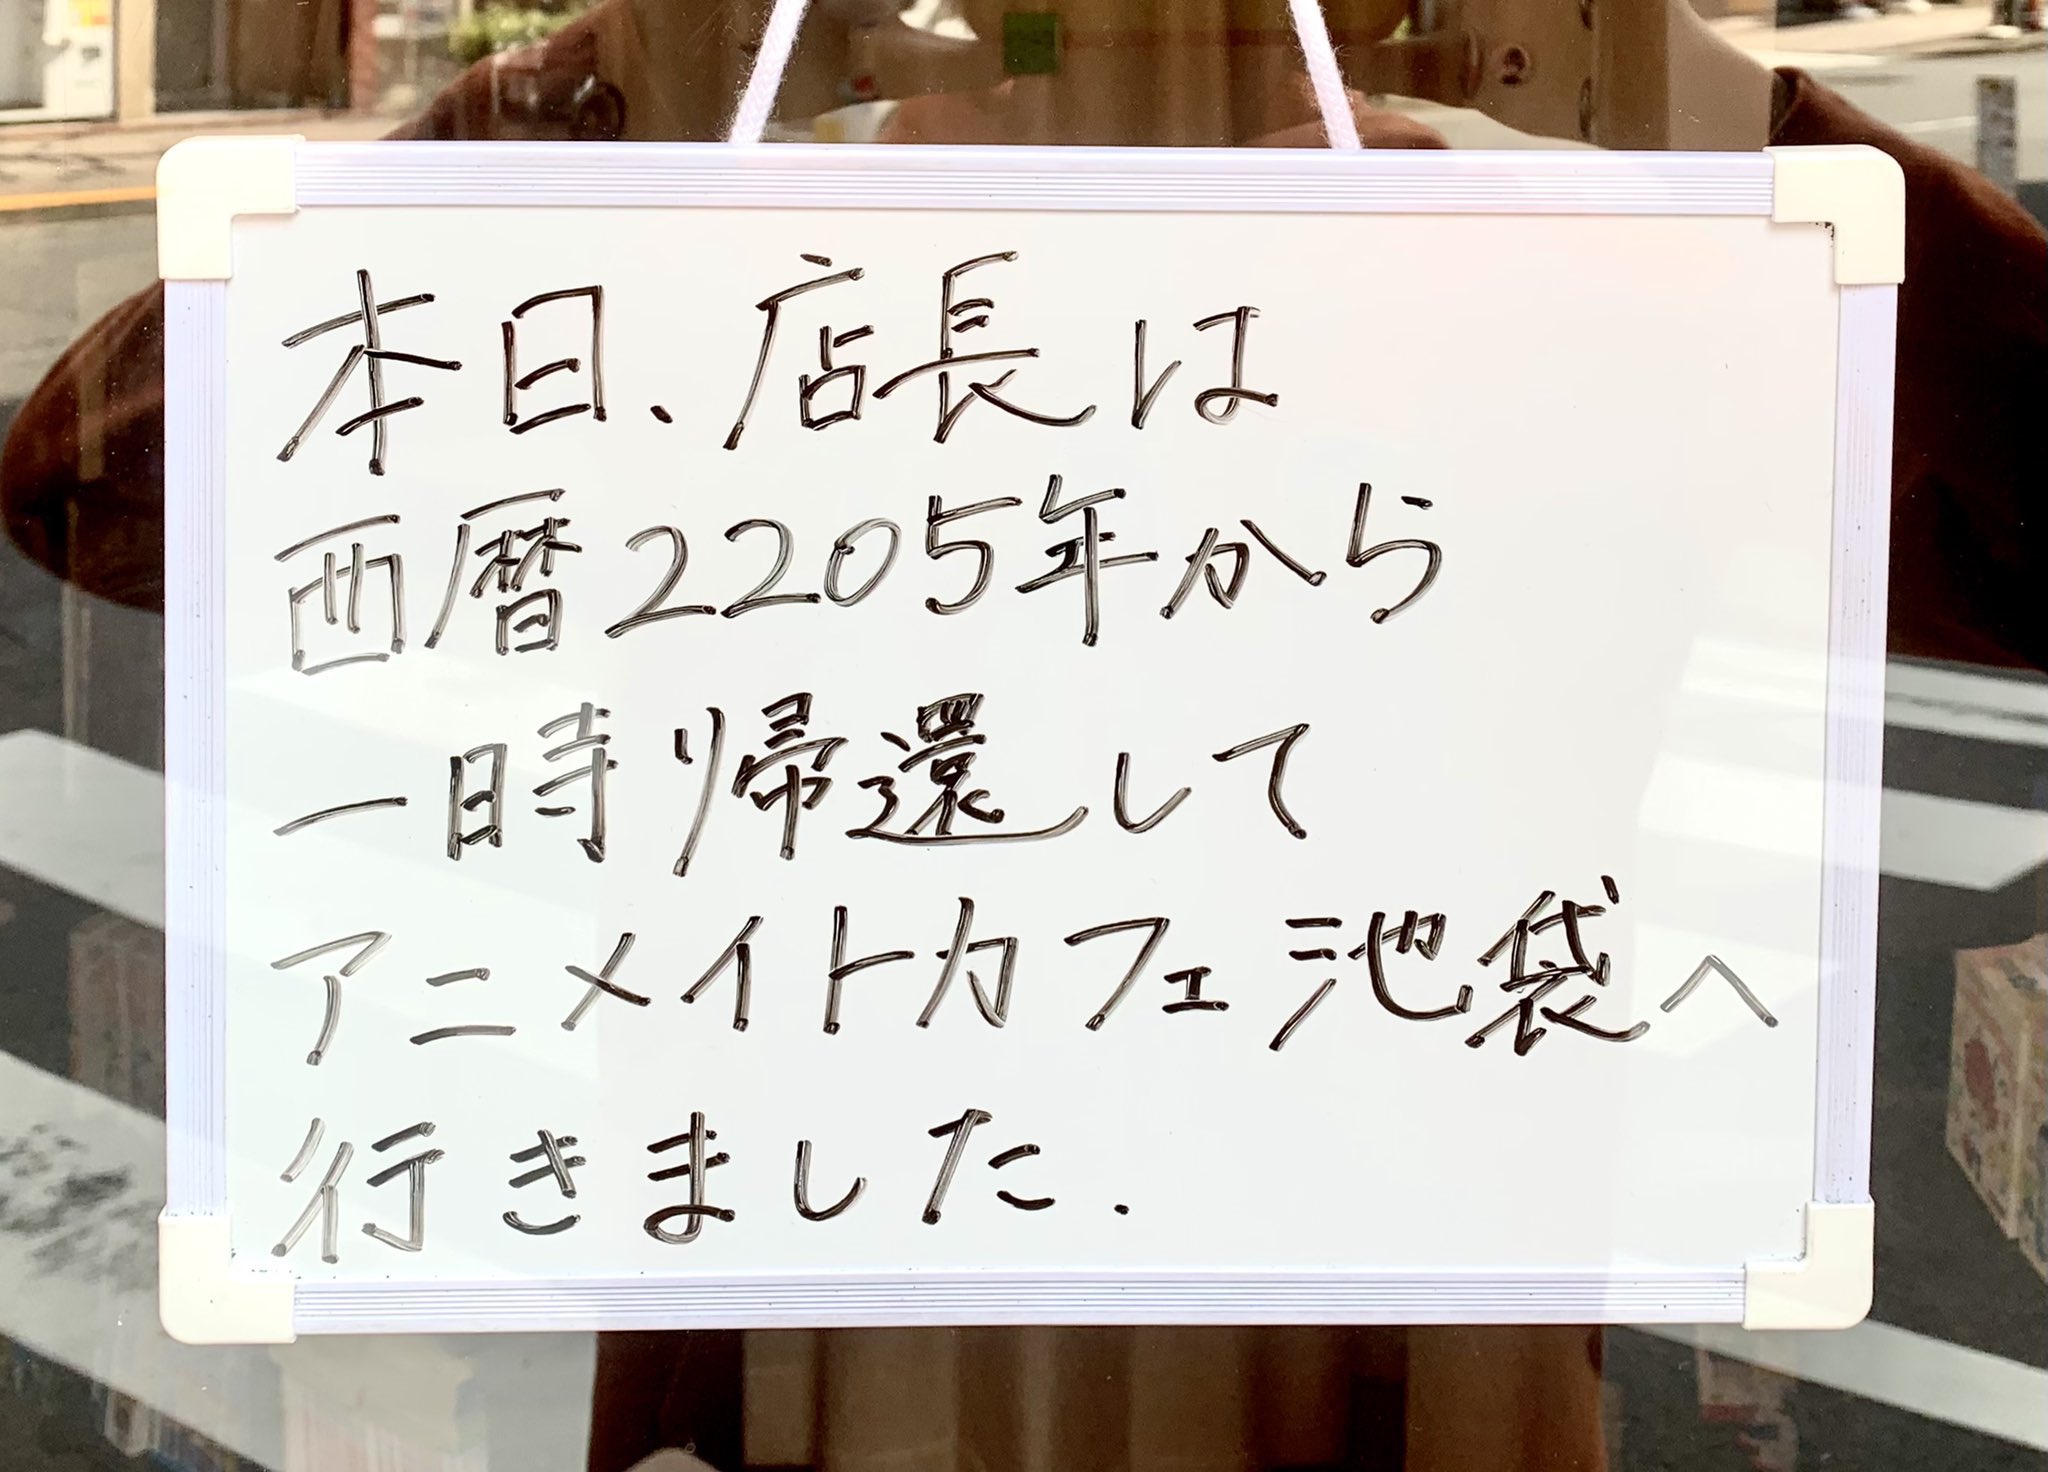 本日、店長は
西暦2205年から
一時帰還して
アニメイトカフェ池袋へ
行きました.